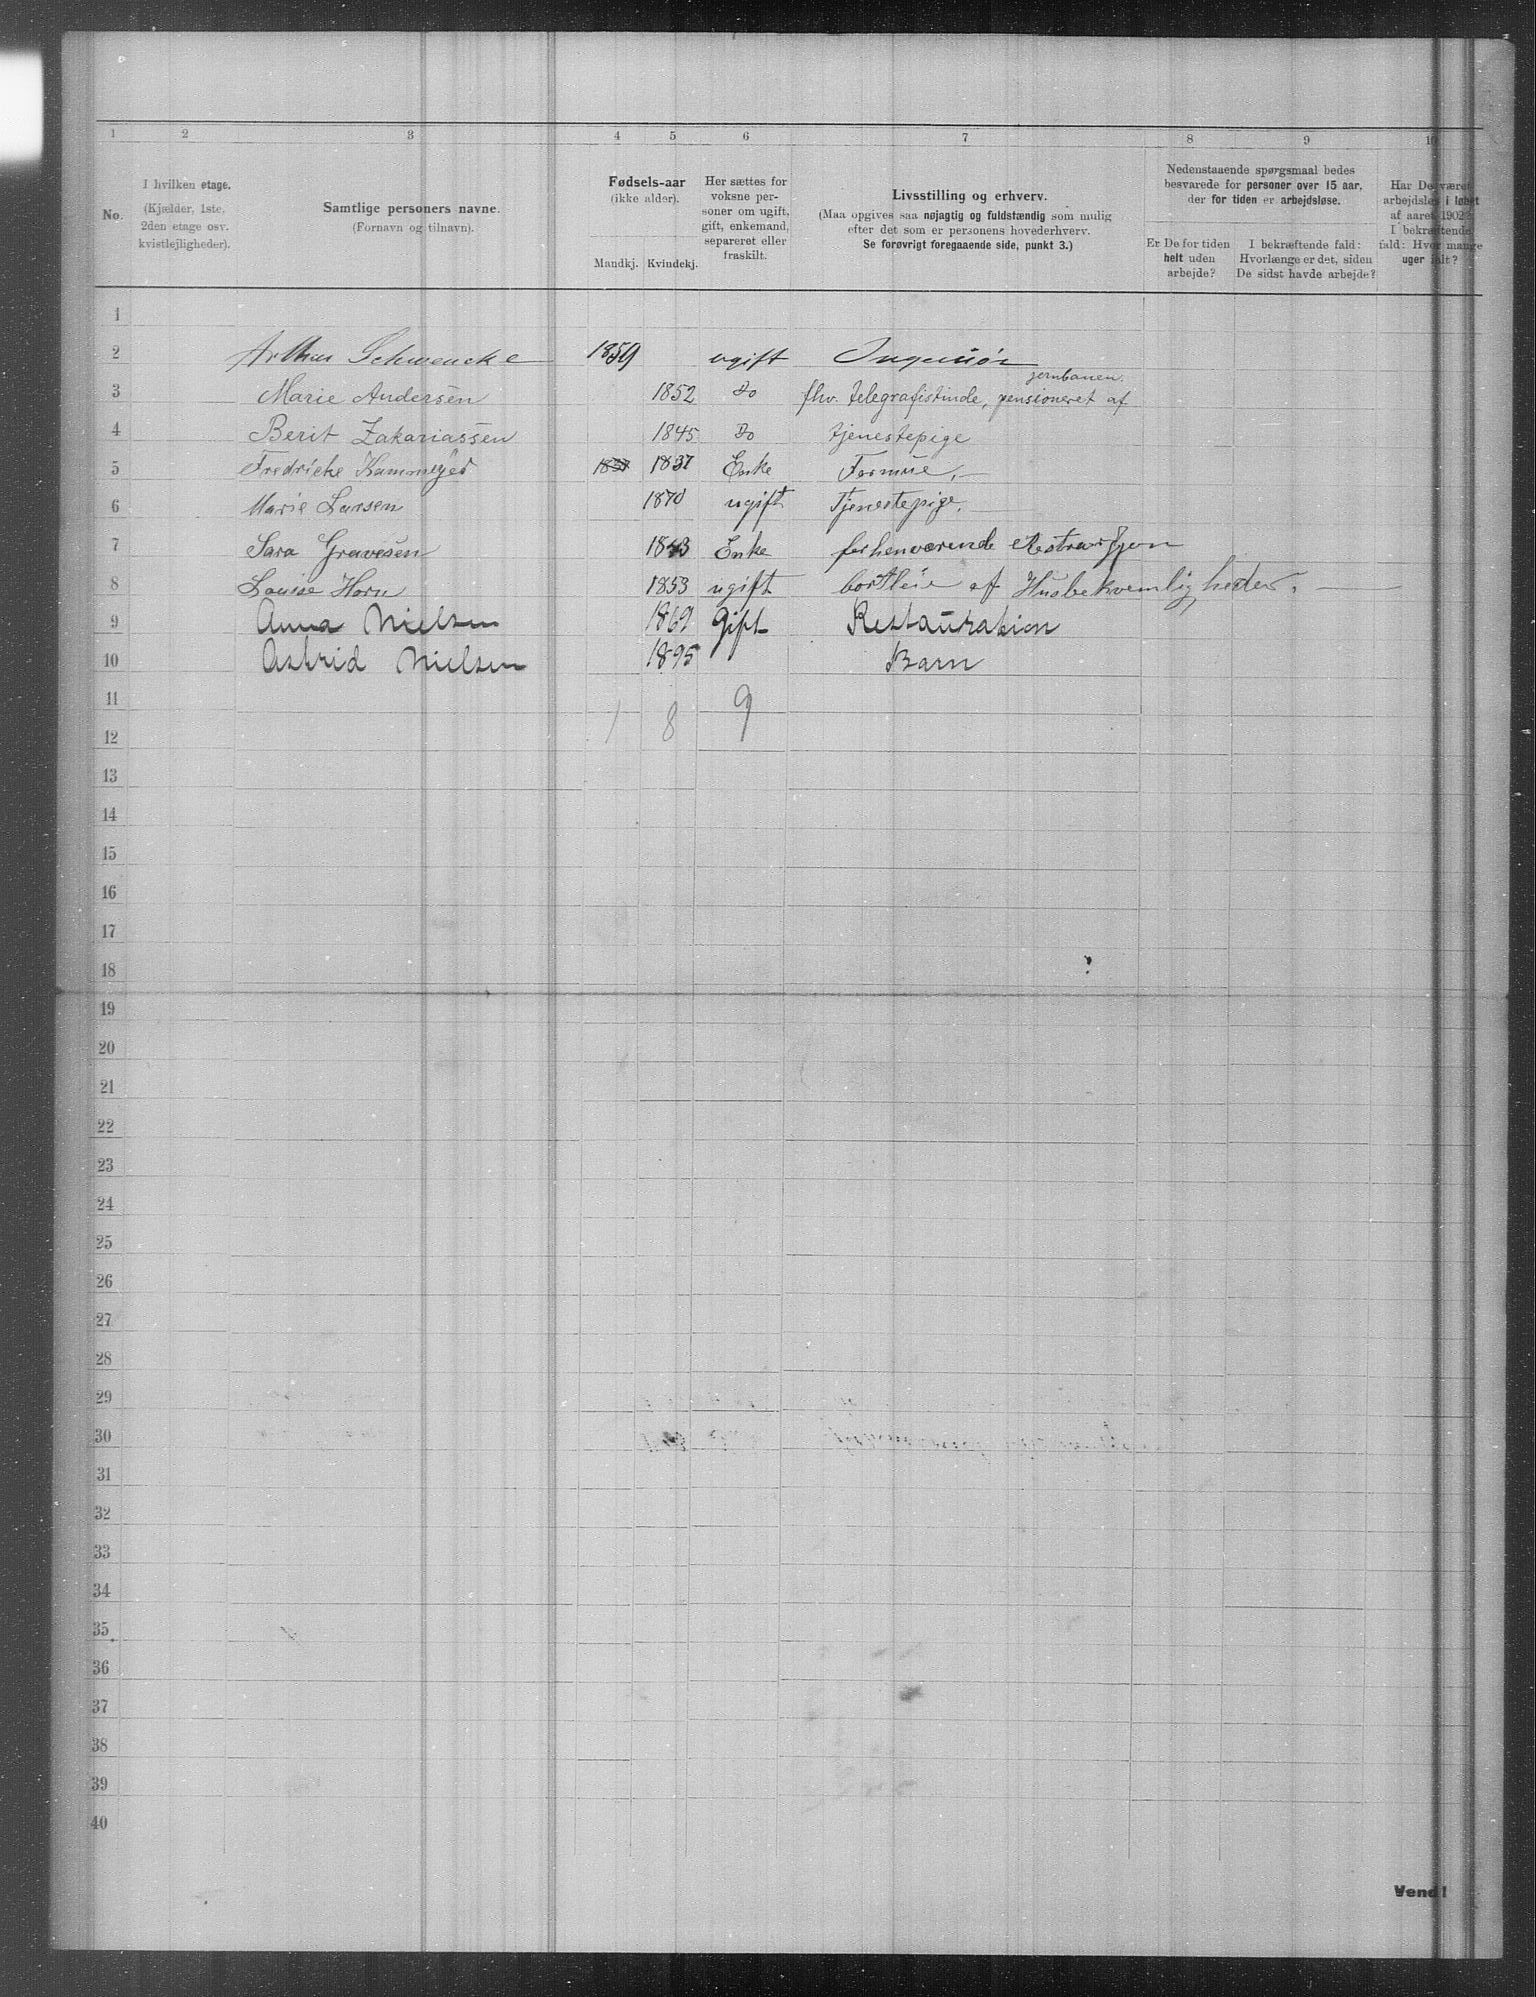 1 2 3 4 5 6 7 8 9 10
No.
I hvilken etage.
(Kjælder, 1ste,
2den etage osv.
kvistlejligheder).
Samtlige personers navne.
(Fornavn og tilnavn).
Fødsels-aar
(ikke alder).
Mandkj. Kvindekj.
Her sættes for
voksne per-
soner om ugift,
gift, enkemand,
separeret eller
fraskilt.
Livsstilling og erhverv.
(Maa opgives saa nøjagtig og fuldstændig som mulig
efter det som er personens hovederhverv.
Se forøvrigt foregaaende side, punkt 3.)
Nedenstaaende spørgsmaal bedes
besvarede for personer over 15 aar,
der for tiden er arbejdsløse.
Er De for tiden
helt uden
arbejde?
I bekræftende fald:
Hvorlænge er det, siden
De sidst havde arbejde?
Har De været
arbejdsløs i løbet
af aaret 1902?
I bekræftende
fald: Hvor mange
uger ialt?
1
2 Arthur Schwencke 1859 ugift Ingeniör
jernbanen.
3 Marie Andersen 1852 Do fhv. telegrafistinde, pensioneret af
4 Berit Zakariassen 1845 Do tjenestepige
5 Fredricke Kammeyer 1837 1837 Enke Formue.
6 Marie Larsen 1870 ugift Tjenestepige.
7 Sara Gravesen 1843 Enke forhenværende
8 Louise Horn 1853 ugift bortleie af Husbekvemligheder.
9 Anna Nielsen 1869 Gift Restauration
10 Astrid Nielsen 1895 Barn
11
1 8 9
12
13
14
15
16
17
18
19
20
21
22
23
24
25
26
27
28
29
30
31
32
33
34
35
36
37
38
39
40
Vend!